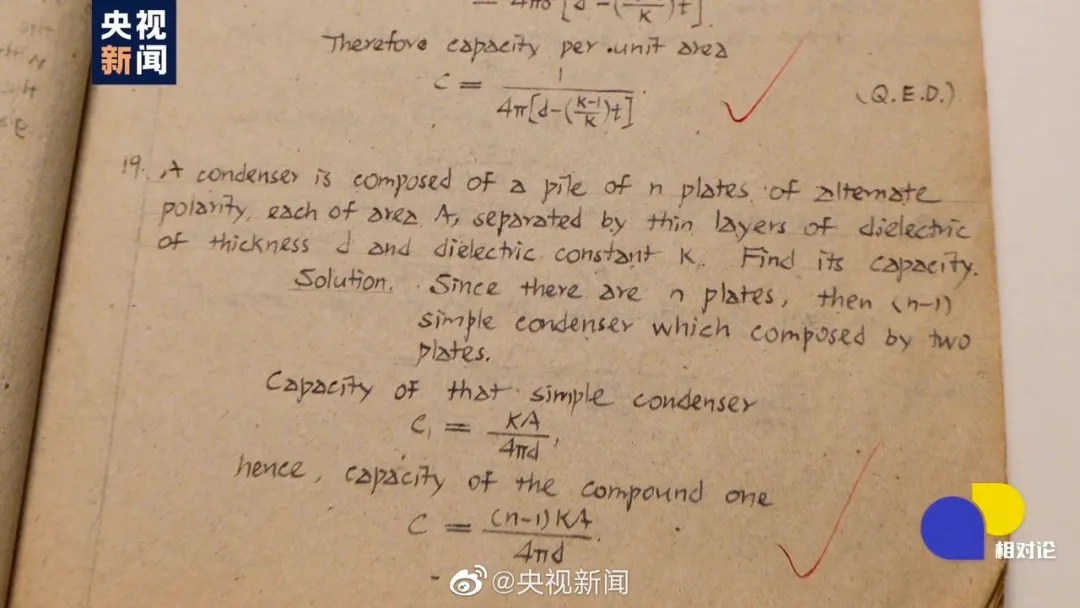 央视
新闻
= 4πσ [d-(K-1/K)t]
Therefore capacity per unit area
C = 1/4π[d-(K-1/K)t]
(Q.E.D.)
19. A condenser is composed of a pile of n plates of alternate
polarity, each of area A, separated by thin layers of dielectric
of thickness d and dielectric constant K. Find its capacity.
Solution. Since there are n plates, then (n-1)
simple condenser which composed by two
plates.
Capacity of that simple condenser
C₁ = KA/4πd,
hence, capacity of the compound one
C = (n-1)KA/4πd.
相对论
@央视新闻